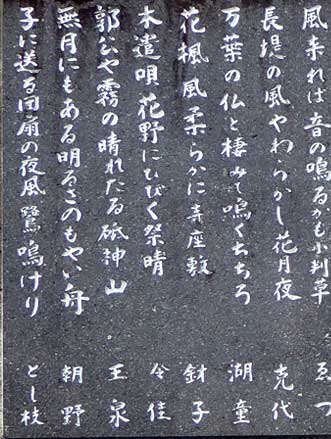 風来れば音の鳴るかも小判草 ゑつ
長堤の風やわらかし花月夜 克代
万葉の仏と棲みて鳴くちちろ 湖童
花楓風柔らかに青座敷 釮子
木遣唄花野にひびく祭晴 令佳
郭公や霧の晴れたる砥神山 王泉
無月にもある明るさのもやい舟 朝野
子に送る団扇の夜風鷺鳴けり とし枝